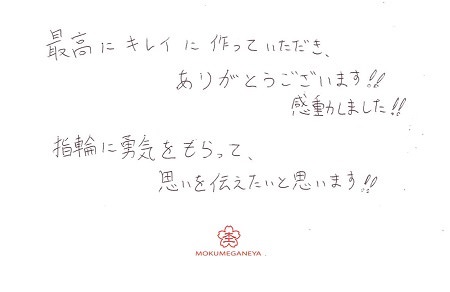 最高にキレイに作っていただき、
ありがとうございます!!
感動しました!!
指輪に勇気をもらって、
思いを伝えたいと思います!!
MOKUMEGANEYA.